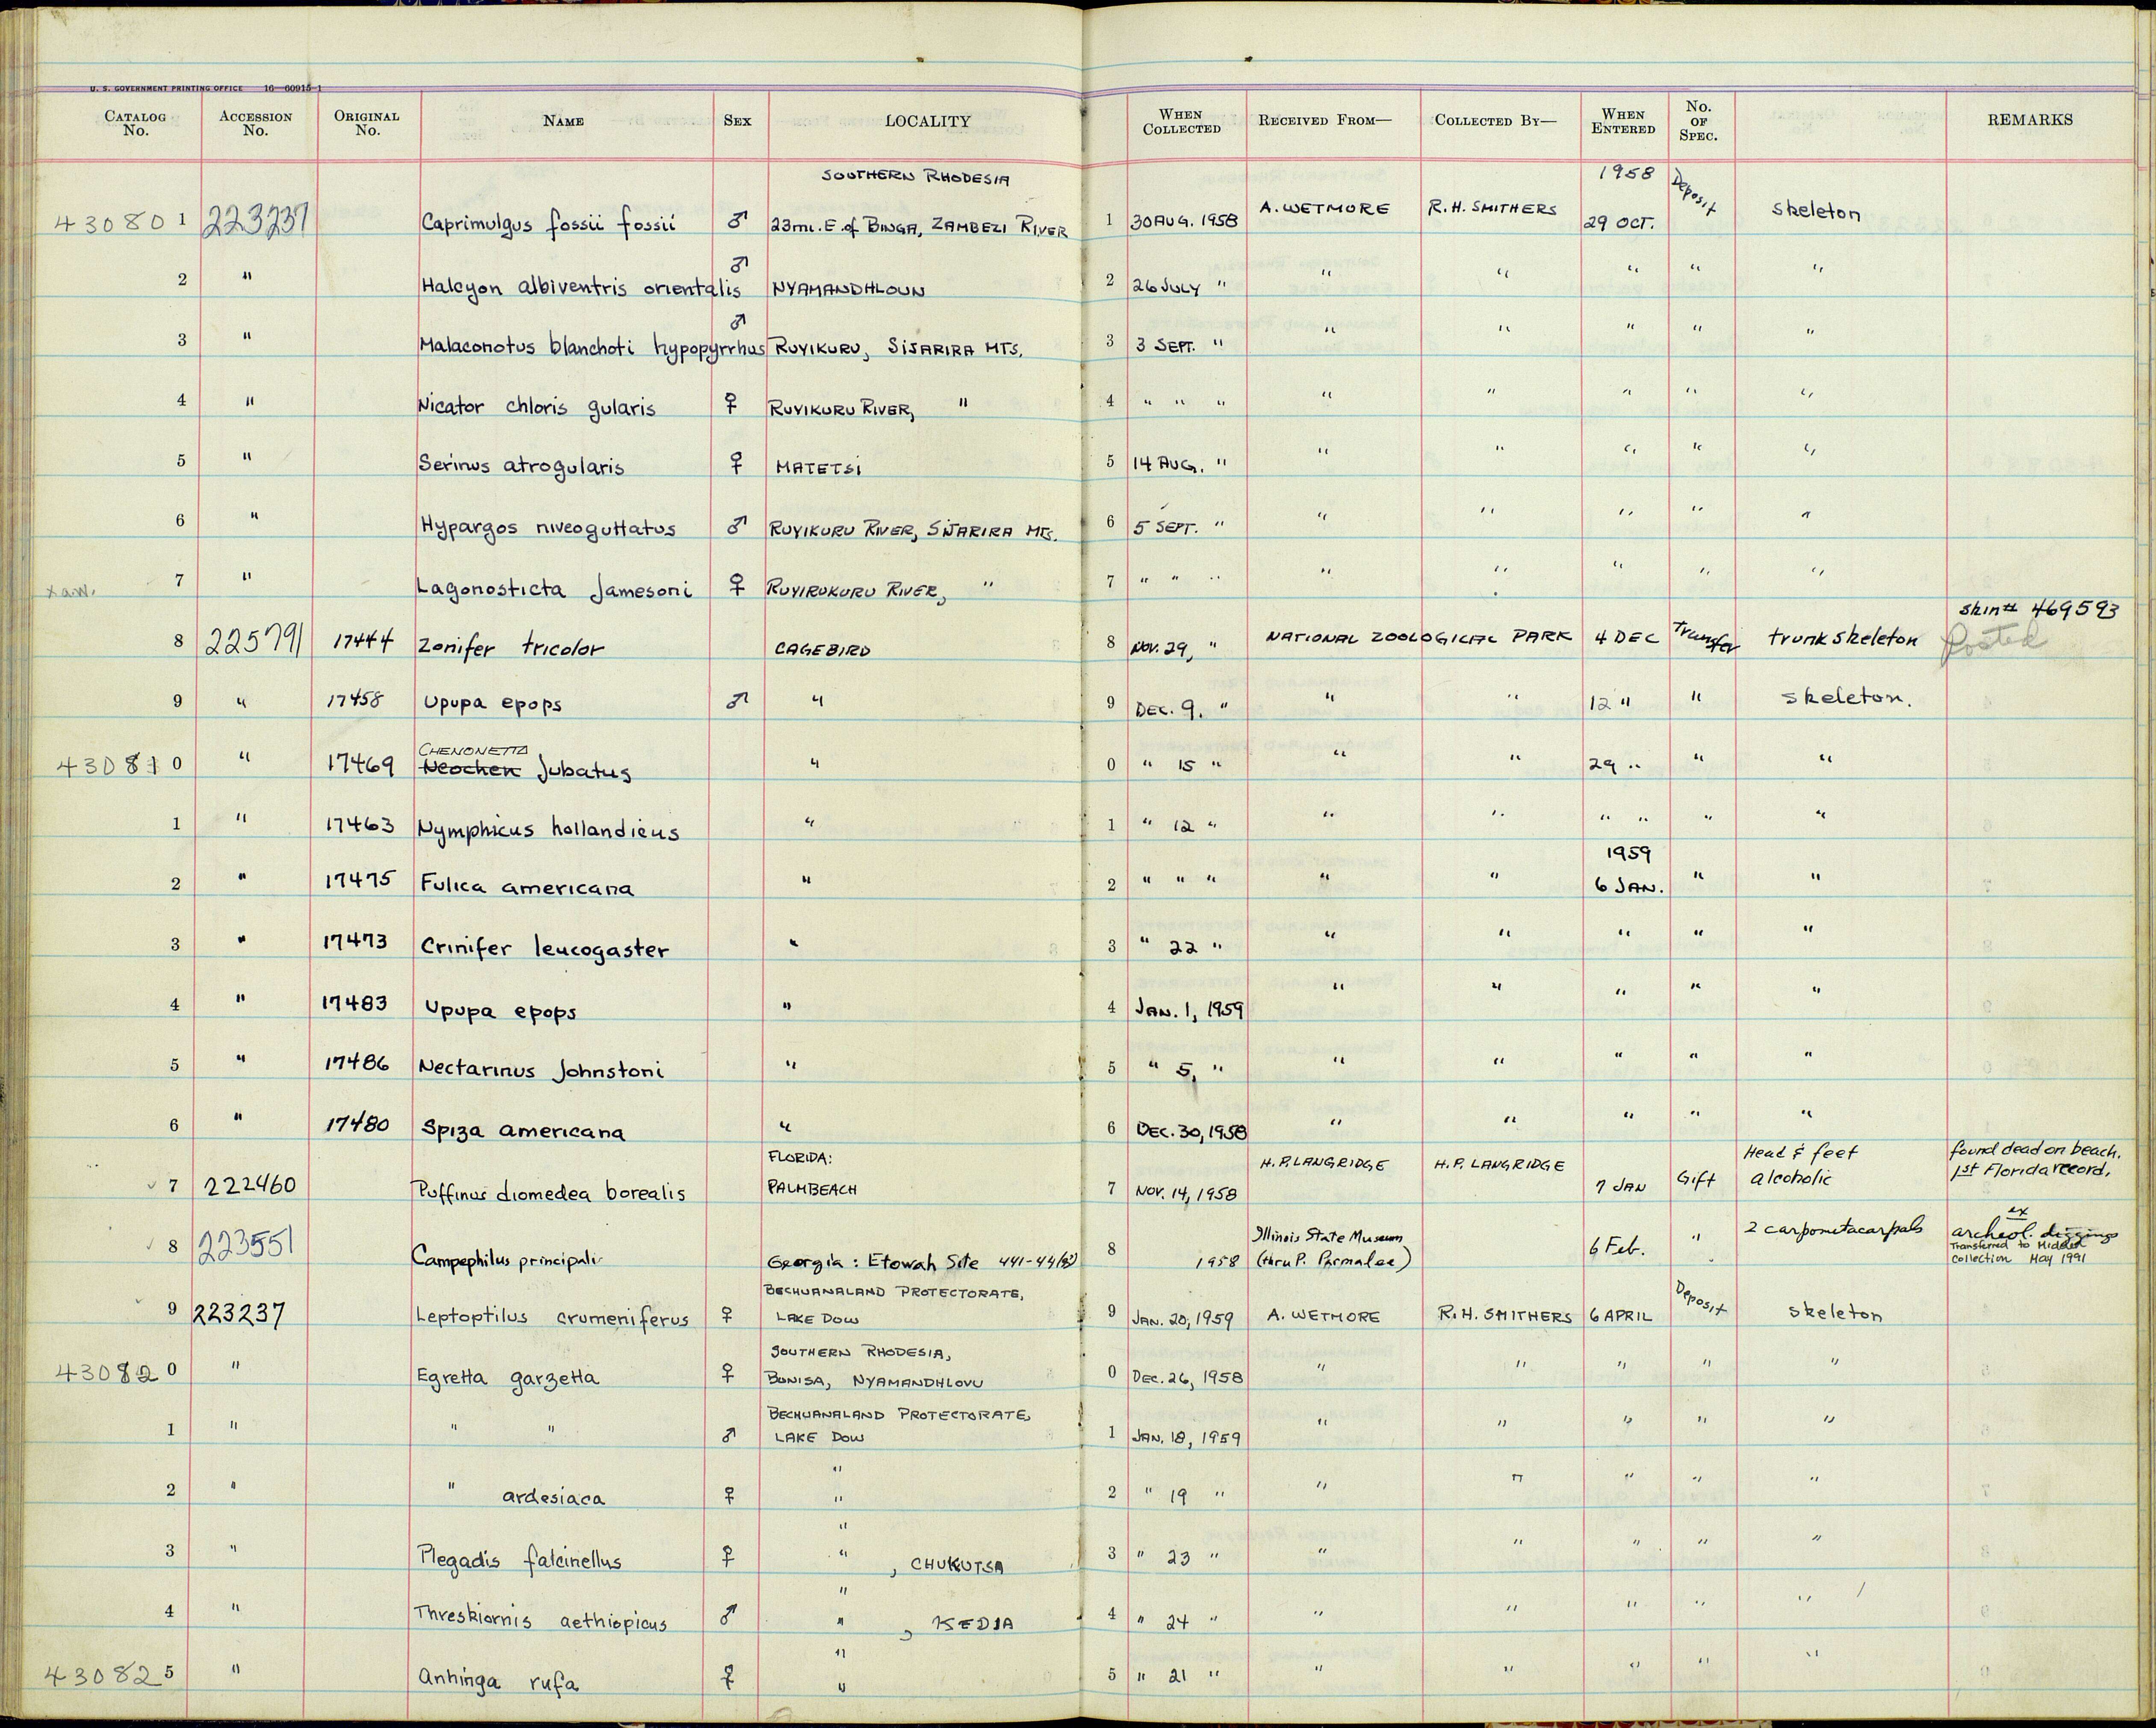 U. S. GOVERNMENT PRINTING OFFICE 16—60915-1
CATALOG No. ACCESSION No. ORIGINAL No. NAME SEX LOCALITY WHEN COLLECTED RECEIVED FROM— COLLECTED BY— WHEN ENTERED No. OF SPEC. REMARKS
SOUTHERN RHODESIA 1958
430801 223237 Caprimulgus fossii fossii ♂ 23mi. E. of BINGA, ZAMBEZI RIVER 1 30 AUG. 1958 A. WETMORE R. H. SMITHERS 29 OCT. Deposit Skeleton
2 " Halcyon albiventris orientalis ♂ NYAMANDHLOUN 2 26 JULY " " " " " "
3 " Malaconotus blanchoti hypopyrrhus ♂ RUYIKURU, SIJARIRA MTS. 3 3 SEPT. " " " " " "
4 " Nicator chloris gularis ♀ RUYIKURU RIVER, " 4 " " " " " " " "
5 " Serinus atrogularis ♀ MATETSI 5 14 AUG. " " " " " "
6 " Hypargos niveoguttatus ♂ RUYIKURU RIVER, SIJARIRA MTS. 6 5 SEPT. " " " " " "
7 " Lagonosticta Jamesoni ♀ RUYIRUKURU RIVER, " 7 " " " " " " " "
skin# 469593
8 225791 17444 Zonifer tricolor CAGEBIRD 8 NOV. 29, " NATIONAL ZOOLOGICAL PARK 4 DEC Transfer trunk skeleton Posted
9 " 17458 Upupa epops ♂ " 9 DEC. 9. " " " 12 " " skeleton.
CHENONETTA
430810 " 17469 Neochen jubatus " 0 " 15 " " " 29 " " "
1 " 17463 Nymphicus hollandicus " 1 " 12 " " " " " " "
1959
2 " 17475 Fulica americana " 2 " " " " " 6 JAN. " "
3 " 17473 Crinifer leucogaster " 3 " 22 " " " " " "
4 " 17483 Upupa epops " 4 JAN. 1, 1959 " " " " "
5 " 17486 Nectarinus Johnstoni " 5 " 5, " " " " " "
6 " 17480 Spiza americana " 6 DEC. 30, 1958 " " " " "
FLORIDA: Head & feet found dead on beach.
7 222460 Puffinus diomedea borealis PALMBEACH 7 NOV. 14, 1958 H. P. LANGRIDGE H. P. LANGRIDGE 7 JAN Gift alcoholic 1st Florida record.
Illinois State Museum 2 carpometacarpals ex
8 223551 Campephilus principalis Georgia: Etowah Site 8 1958 (thru P. Parmalee) 6 Feb. " archeol. diggings
Transferred to Midden
Collection May 1991
BECHUANALAND PROTECTORATE,
9 223237 Leptoptilus crumeniferus ♀ LAKE DOW 9 JAN. 20, 1959 A. WETMORE R. H. SMITHERS 6 APRIL Deposit skeleton
SOUTHERN RHODESIA,
430820 " Egretta garzetta ♀ BONISA, NYAMANDHLOVU 0 DEC. 26, 1958 " " " " "
BECHUANALAND PROTECTORATE,
1 " " " ♂ LAKE DOW 1 JAN. 18, 1959 " " " " "
"
2 " " ardesiaca ♀ " 2 " 19 " " " " " "
"
3 " Plegadis falcinellus ♀ " , CHUKUTSA 3 " 23 " " " " " "
"
4 " Threskiornis aethiopicus ♂ " , KEDIA 4 " 24 " " " " " "
"
430825 " Anhinga rufa ♀ " 5 " 21 " " " " " "